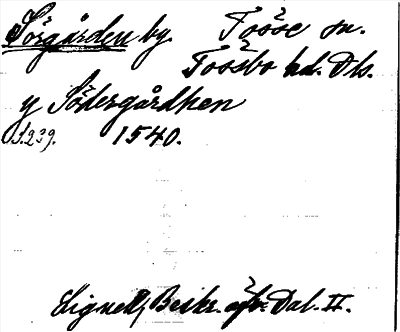 Sörgården by. Tösse sn.
Tössbo hd. Dls.
y Södergårdhen
S. 239. 1540.
Lignell, Beskr. öfv. Dal. II.